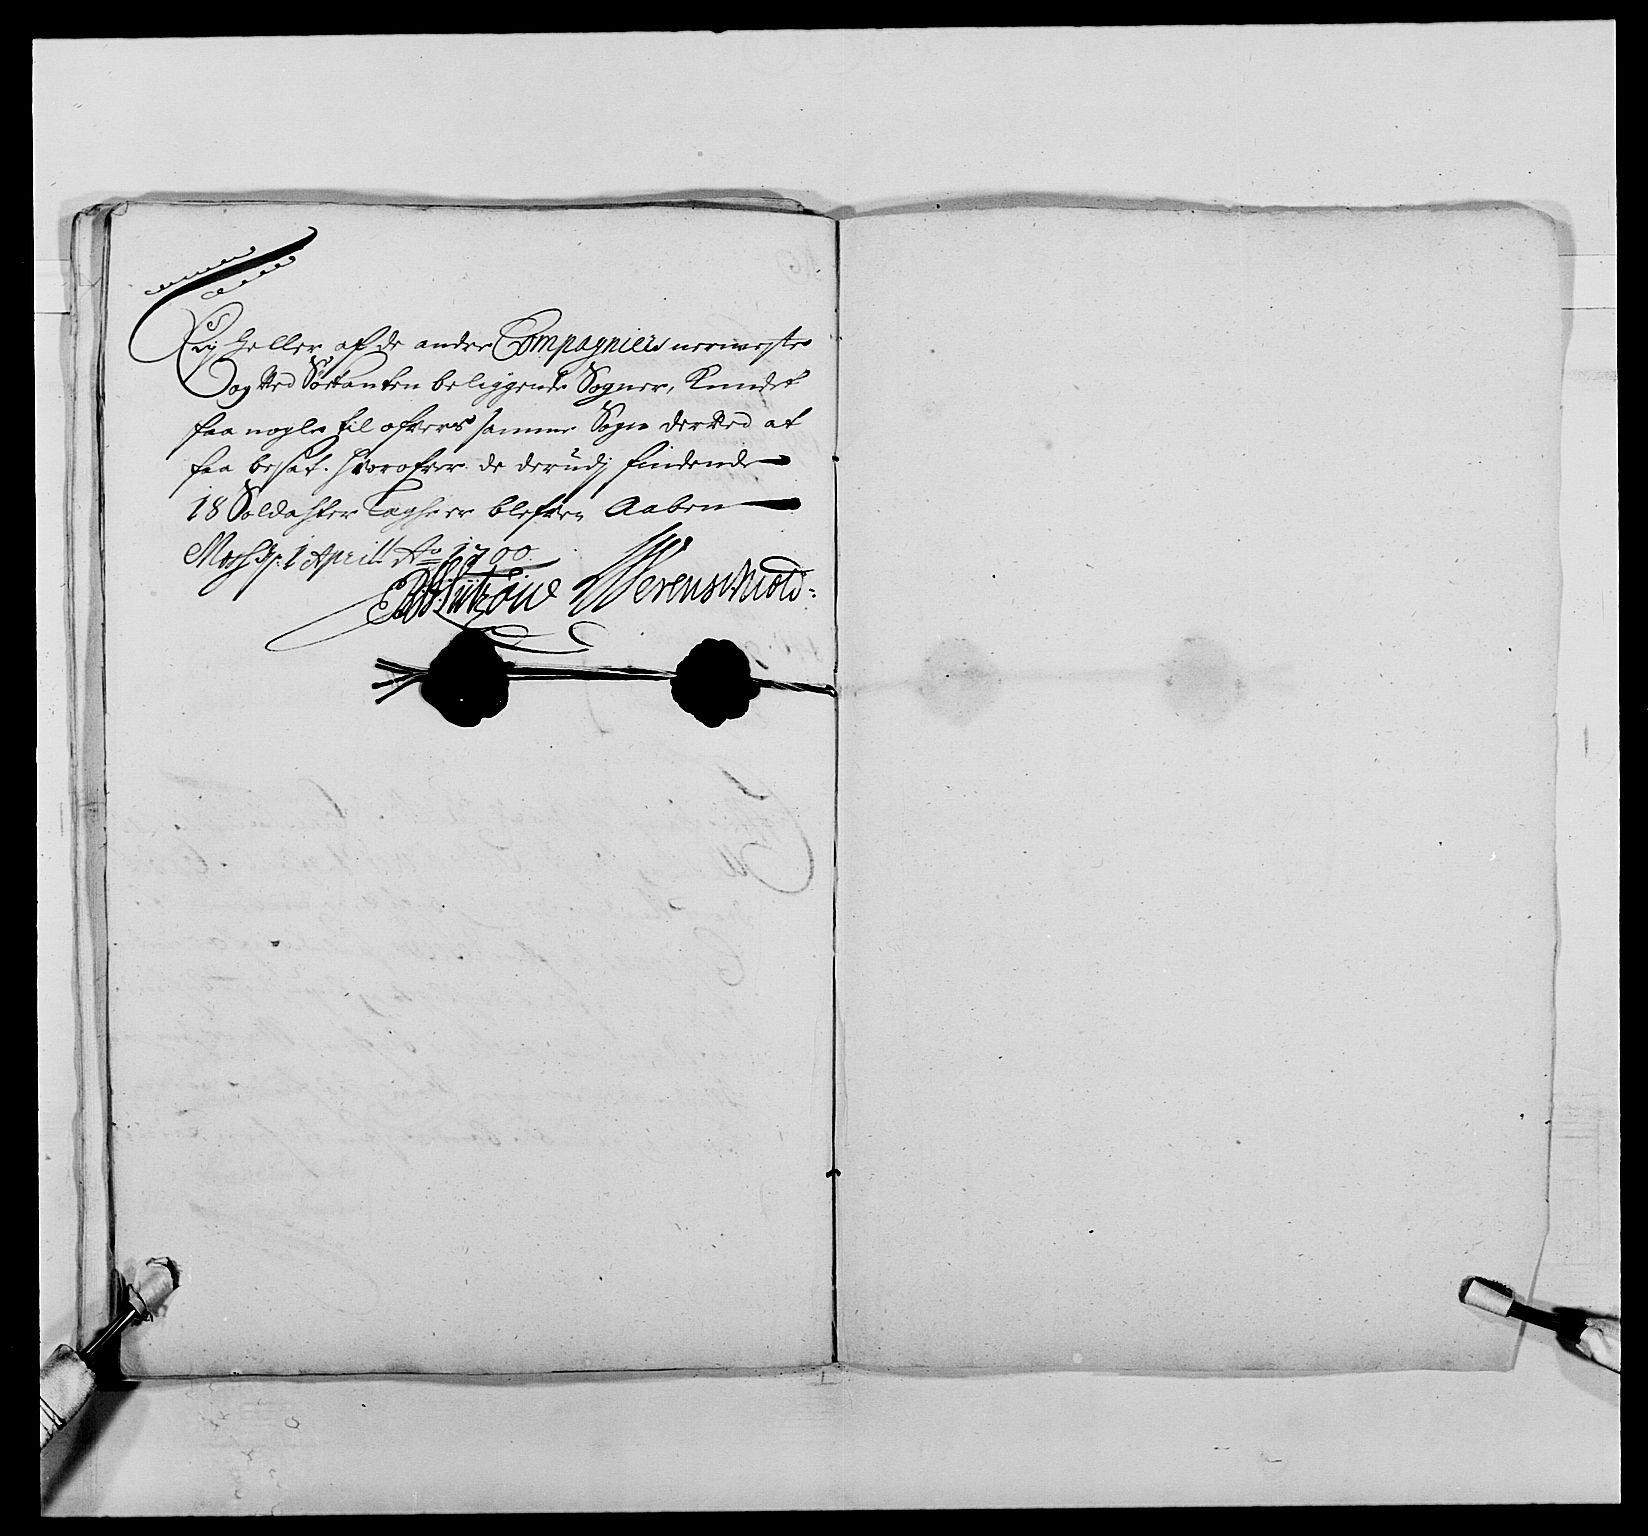 Ey heller af de andre Compagniers nermeste
og ved Søekanten beliggende Sogner, Kundet
faa nogle til ofvers samme Sogn derved at
faa besat. Hvorofver de derudj findende
18 Soldahter Lagher blefven Aaben
Moss dr: 1 Aprill Ao 1700.
Werenschiold